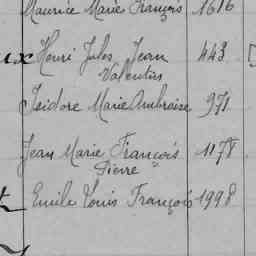 Maurice Marie François 1616
ux Henri Jules Jean 443
Valentin
Isidore Marie Ambroise 971
Jean Marie François 1178
Pierre
Emile Louis François 1998